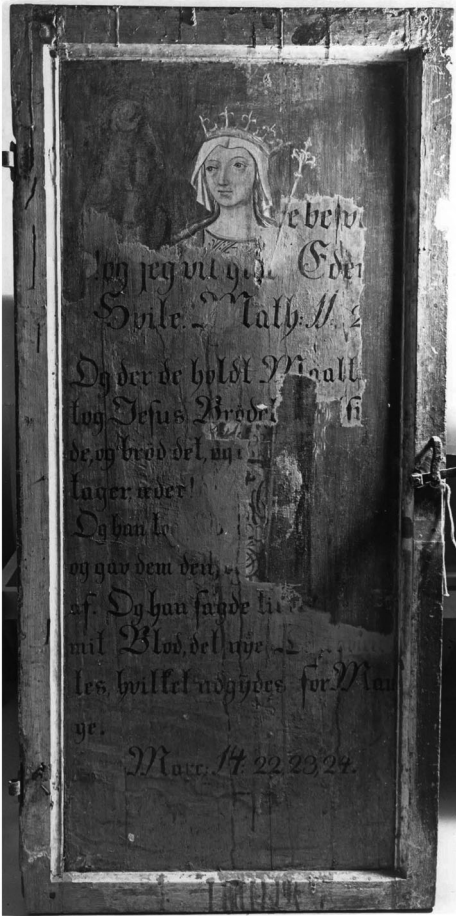 og jeg vil Eder
Hvile. Math. 11. 2
Og der de holdt Maalt
tog Jesus Brödet
de, og bröd det, og
tager æder!
Og han to
og gav dem den,
af. Og han sagde til
mit Blod, det nye
les, hvilket udgydes for Man
ge.
Marc. 14. 22, 23, 24.